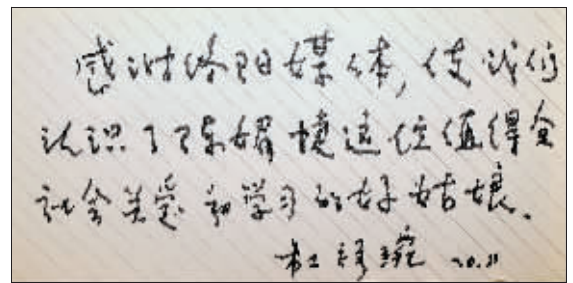 感谢洛阳媒体，使我们
认识了陈媚婕这位值得全
社会关爱和学习的好姑娘。
杜 琬 20.11